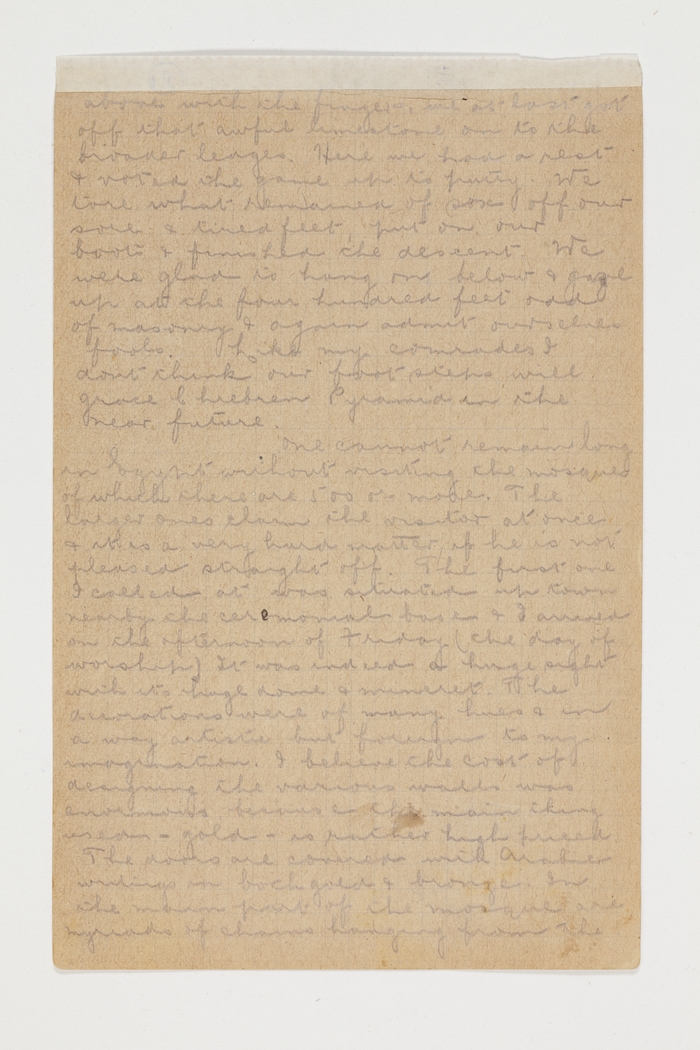 above with the fingers, we at last got
off that awful limestone on to the
broader ledges. Here we had a rest
& voted the game up to putty. We
tore what remained of sox off our
sore & tired feet, put on our
boots & finished the descent. We
were glad to hang on below & gaze
up at the four hundred feet odd
of masonry & again admit ourselves
fools. Like my comrades I
dont think our foot steps will
grace Chrebren Pyramid in the
near future.
One cannot remain long
in Egypt without visiting the mosques
of which there are 500 or more. The
larger ones claim the visitor at once
& it is a very hard matter if he is not
pleased straight off. The first one
I called at was situated up town
nearby the ceremonial base & I arrived
on the afternoon of Friday (the day of
worship) It was indeed a huge sight
with its huge dome & mineret. The
decorations were of many hues & in
a way artistic but foreign to my
imagination. I believe the cost of
designing the various walls was
enormous because the main thing
used - gold - is rather high priced
The doors are covered with Arabic
writings in both gold & bronze. In
the main part of the mosque are
myriads of chains hanging from the